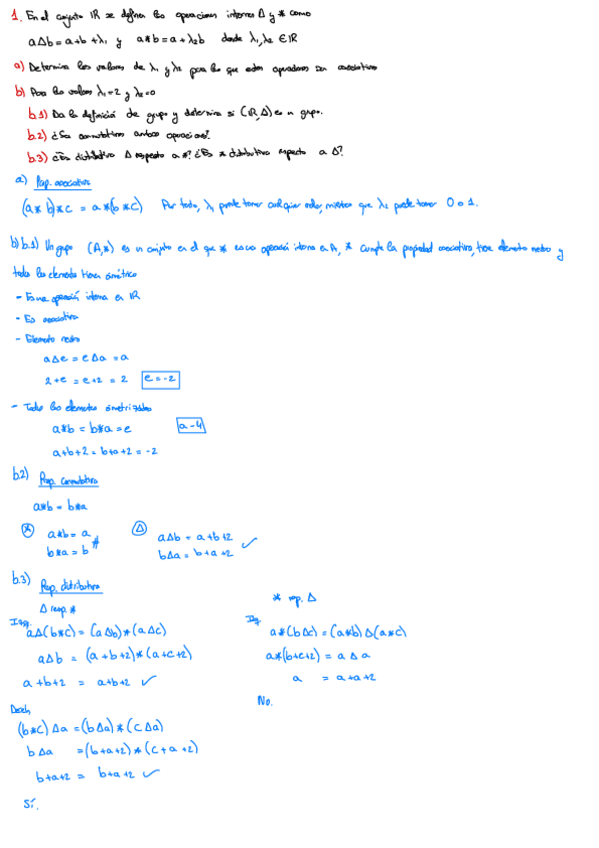 1. En el conjunto IR se definen las operaciones internas Δ y * como
aΔb = a+b+λ₁ y a*b = a+λ₂b donde λ₁, λ₂ ∈ IR
a) Determina los valores de λ₁ y λ₂ para los que estas operaciones son asociativas
b) Para los valores λ₁=2 y λ₂=0
b.1) Da la definición de grupo y determina si (IR, Δ) es un grupo.
b.2) ¿Son conmutativas ambas operaciones?
b.3) ¿Es distributiva Δ respecto a *? ¿Es * distributiva respecto a Δ?
a) Prop. asociativa
(a*b)*c = a*(b*c) Por tanto, λ₁ puede tomar cualquier valor, mientras que λ₂ puede tomar 0 o 1.
b) b.1) Un grupo (A,*) es un conjunto en el que * es una operación interna en A, * cumple la propiedad asociativa, tiene elemento neutro y
todos los elementos tienen simétrico
- Es una operación interna en IR
- Es asociativa
- Elemento neutro
aΔe = eΔa = a
2+e = e+2 = 2 e = -2
- Todos los elementos simetrizables
a*b = b*a = e a-4
a+b+2 = b+a+2 = -2
b.2) Prop. conmutativa
a*b = b*a
* a*b = a Δ aΔb = a+b+2
b*a = b bΔa = b+a+2 ✓
b.3) Prop. distributiva
Δ resp. * * resp. Δ
Izq. aΔ(b*c) = (aΔb)*(aΔc) Izq. a*(bΔc) = (a*b)Δ(a*c)
aΔb = (a+b+2)*(a+c+2) a*(b+c+2) = aΔa
a+b+2 = a+b+2 ✓ a = a+a+2
Derch. No.
(b*c)Δa = (bΔa)*(cΔa)
bΔa = (b+a+2)*(c+a+2)
b+a+2 = b+a+2 ✓
Sí.